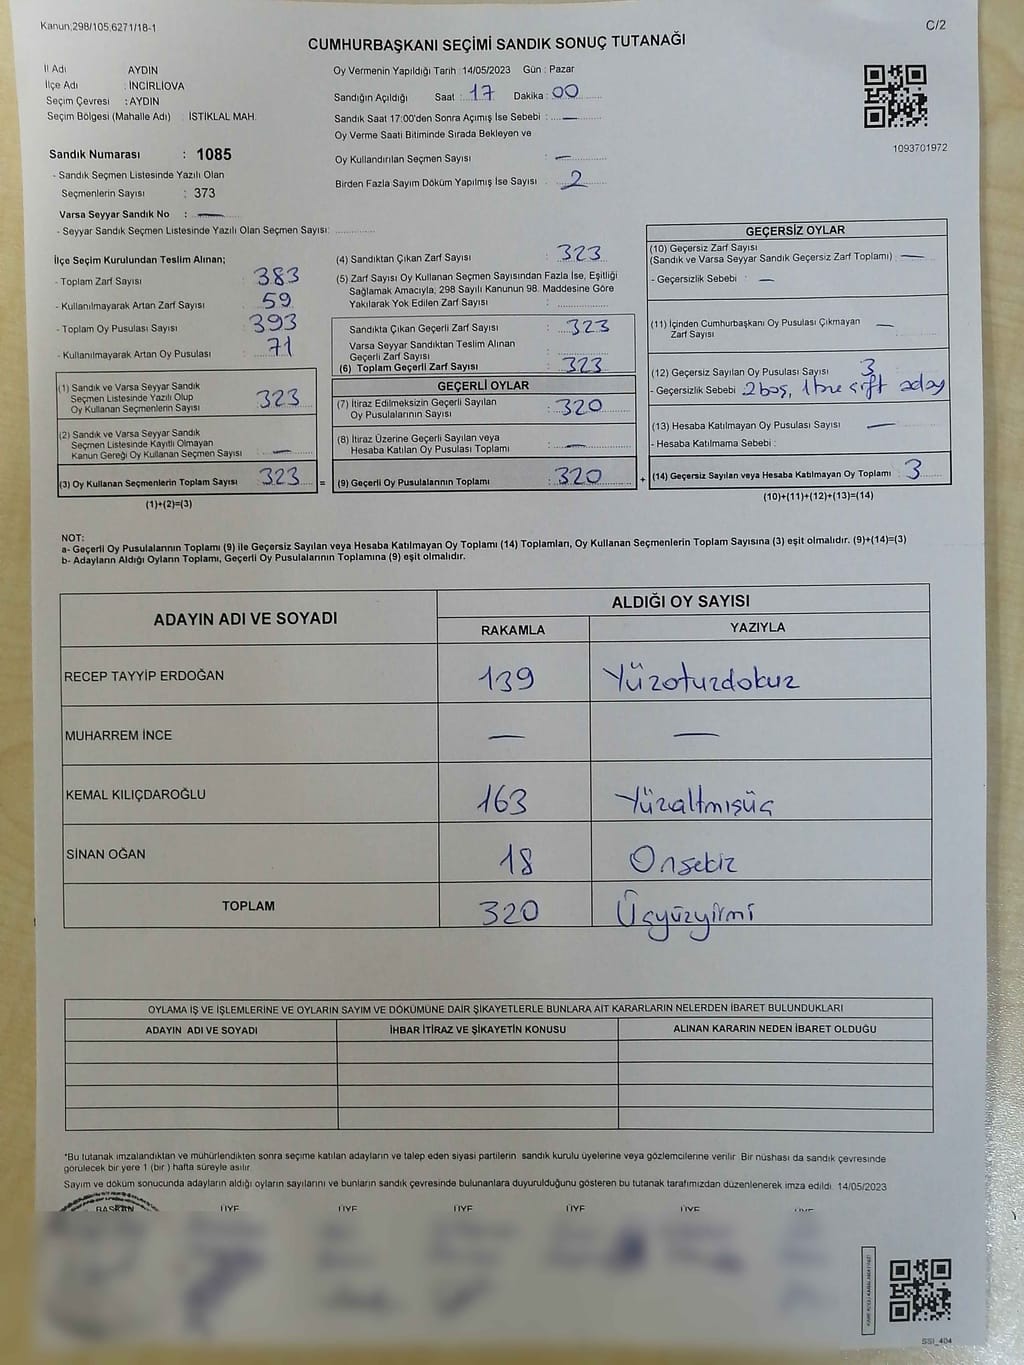 Kanun,298/105,6271/18-1
C/2
CUMHURBAŞKANI SEÇİMİ SANDIK SONUÇ TUTANAĞI
İl Adı AYDIN
İlçe Adı : İNCİRLİOVA
Seçim Çevresi : AYDIN
Seçim Bölgesi (Mahalle Adı) : İSTİKLAL MAH.
Sandık Numarası : 1085
- Sandık Seçmen Listesinde Yazılı Olan
Seçmenlerin Sayısı : 373
Varsa Seyyar Sandık No : —
- Seyyar Sandık Seçmen Listesinde Yazılı Olan Seçmen Sayısı:
Oy Vermenin Yapıldığı Tarih : 14/05/2023 Gün : Pazar
Sandığın Açıldığı Saat : 17 Dakika : 00
Sandık Saat 17:00'den Sonra Açımış İse Sebebi : —
Oy Verme Saati Bitiminde Sırada Bekleyen ve
Oy Kullandırılan Seçmen Sayısı : —
Birden Fazla Sayım Döküm Yapılmış İse Sayısı : 2
1093701972
İlçe Seçim Kurulundan Teslim Alınan;
- Toplam Zarf Sayısı : 383
- Kullanılmayarak Artan Zarf Sayısı : 59
- Toplam Oy Pusulası Sayısı : 393
- Kullanılmayarak Artan Oy Pusulası : 71
(1) Sandık ve Varsa Seyyar Sandık
Seçmen Listesinde Yazılı Olup
Oy Kullanan Seçmenlerin Sayısı : 323
(2) Sandık ve Varsa Seyyar Sandık
Seçmen Listesinde Kayıtlı Olmayan
Kanun Gereği Oy Kullanan Seçmen Sayısı : —
(3) Oy Kullanan Seçmenlerin Toplam Sayısı : 323 =
(1)+(2)=(3)
(4) Sandıktan Çıkan Zarf Sayısı : 323
(5) Zarf Sayısı Oy Kullanan Seçmen Sayısından Fazla İse, Eşitliği
Sağlamak Amacıyla, 298 Sayılı Kanunun 98. Maddesine Göre
Yakılarak Yok Edilen Zarf Sayısı :
Sandıkta Çıkan Geçerli Zarf Sayısı : 323
Varsa Seyyar Sandıktan Teslim Alınan
Geçerli Zarf Sayısı :
(6) Toplam Geçerli Zarf Sayısı : 323
GEÇERLİ OYLAR
(7) İtiraz Edilmeksizin Geçerli Sayılan
Oy Pusulalarının Sayısı : 320
(8) İtiraz Üzerine Geçerli Sayılan veya
Hesaba Katılan Oy Pusulası Toplamı : —
(9) Geçerli Oy Pusulalarının Toplamı : 320 +
GEÇERSİZ OYLAR
(10) Geçersiz Zarf Sayısı
(Sandık ve Varsa Seyyar Sandık Geçersiz Zarf Toplamı) : —
- Geçersizlik Sebebi : —
(11) İçinden Cumhurbaşkanı Oy Pusulası Çıkmayan
Zarf Sayısı : —
(12) Geçersiz Sayılan Oy Pusulası Sayısı : 3
- Geçersizlik Sebebi : 2 boş, 1 çift aday
(13) Hesaba Katılmayan Oy Pusulası Sayısı : —
- Hesaba Katılmama Sebebi :
(14) Geçersiz Sayılan veya Hesaba Katılmayan Oy Toplamı : 3
(10)+(11)+(12)+(13)=(14)
NOT:
a- Geçerli Oy Pusulalarının Toplamı (9) ile Geçersiz Sayılan veya Hesaba Katılmayan Oy Toplamı (14) Toplamları, Oy Kullanan Seçmenlerin Toplam Sayısına (3) eşit olmalıdır. (9)+(14)=(3)
b- Adayların Aldığı Oyların Toplamı, Geçerli Oy Pusulalarının Toplamına (9) eşit olmalıdır.
ADAYIN ADI VE SOYADI ALDIĞI OY SAYISI
RAKAMLA YAZIYLA
RECEP TAYYİP ERDOĞAN 139 Yüzotuzdokuz
MUHARREM İNCE — —
KEMAL KILIÇDAROĞLU 163 Yüzaltmışüç
SİNAN OĞAN 18 Onsekiz
TOPLAM 320 Üçyüzyirmi
OYLAMA İŞ VE İŞLEMLERİNE VE OYLARIN SAYIM VE DÖKÜMÜNE DAİR ŞİKAYETLERLE BUNLARA AİT KARARLARIN NELERDEN İBARET BULUNDUKLARI
ADAYIN ADI VE SOYADI İHBAR İTİRAZ VE ŞİKAYETİN KONUSU ALINAN KARARIN NEDEN İBARET OLDUĞU
*Bu tutanak imzalandıktan ve mühürlendikten sonra seçime katılan adayların ve talep eden siyasi partilerin sandık kurulu üyelerine veya gözlemcilerine verilir. Bir nüshası da sandık çevresinde
görülecek bir yere 1 (bir ) hafta süreyle asılır.
Sayım ve döküm sonucunda adayların aldığı oyların sayılarını ve bunların sandık çevresinde bulunanlara duyurulduğunu gösteren bu tutanak tarafımızdan düzenlenerek imza edildi. 14/05/2023
BAŞKAN ÜYE ÜYE ÜYE ÜYE ÜYE ÜYE
SSI_404